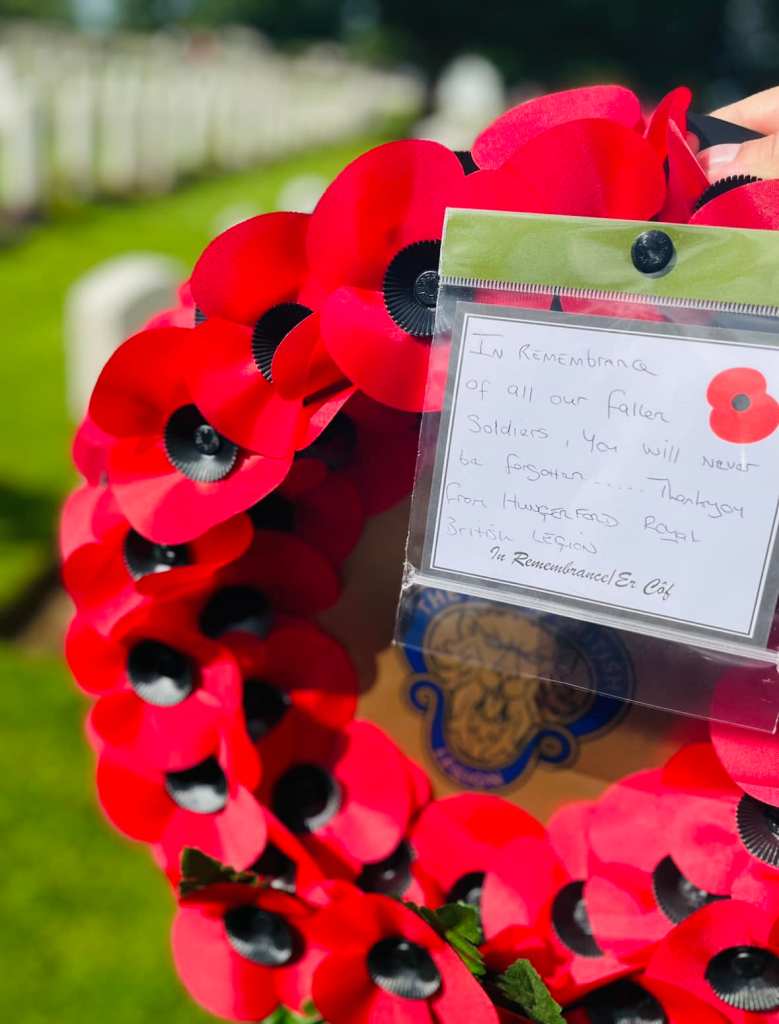 In Remembrance
of all our fallen
Soldiers, you will never
be forgotten ..... Thankyou
from HUNGERFORD Royal
British LEGION
In Remembrance/Er Côf
TH BRITISH
LEGION